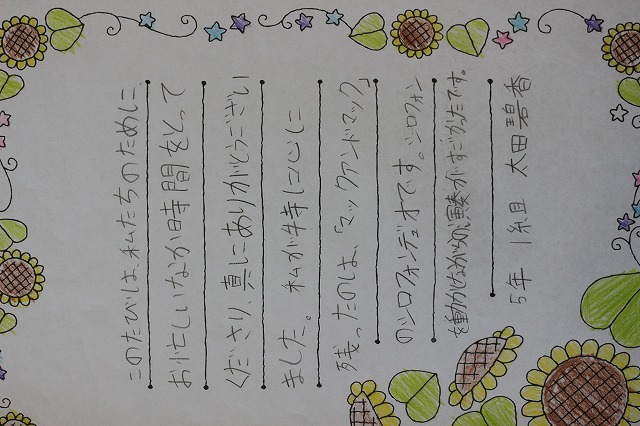 このたびは、私たちのために、
お忙しいなか時間をとって
くださり、真にありがとうござい
ました。私が特に心に
残ったのは、「マックアンドマック」
のシロフォンデュオです。シロフォン
を動かしながらの演奏がすごかったです。
5年 1組 太田碧香